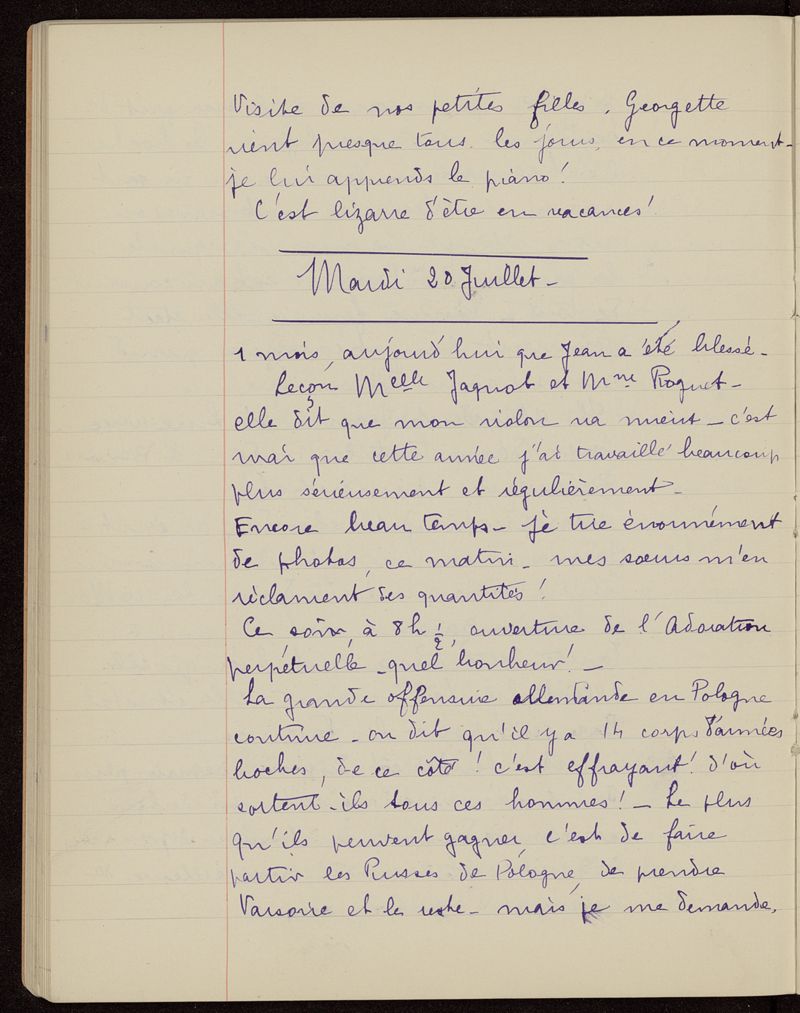 Visite de nos petites filles. Georgette
vient presque tous les jours, en ce moment -
je lui apprends le piano !
C'est bizarre d'être en vacances !
Mardi 20 Juillet -
1 mois, aujourd'hui que Jean a été blessé -
Leçon Melle Jaquot et Mme Roguet -
elle dit que mon violon va mieux - c'est
vrai que cette année j'ai travaillé beaucoup
plus sérieusement et régulièrement -
Encore beau temps - je tire énormément
de photos, ce matin - mes sœurs m'en
réclament des quantités !
Ce soir, à 8h 1/2, ouverture de l'Adoration
perpétuelle - quel bonheur ! -
La grande offensive allemande en Pologne
continue - on dit qu'il y a 14 corps d'armées
boches, de ce côté ! c'est effrayant ! d'où
sortent-ils tous ces hommes ! - Le plus
qu'ils peuvent gagner, c'est de faire
partir les Russes de Pologne, de prendre
Varsovie et le reste - mais je me demande,